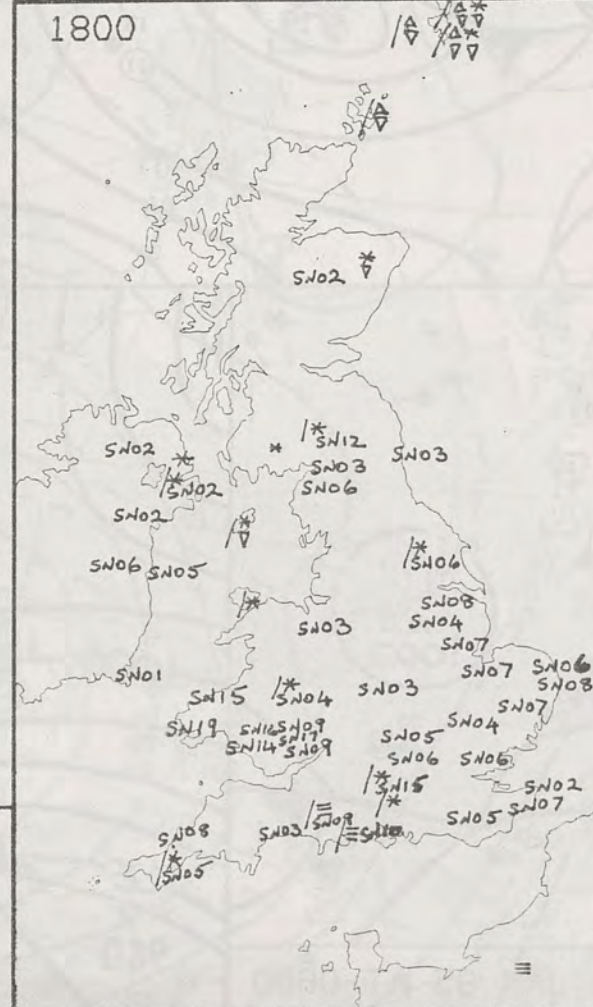 1800
SN02
SN02
SN12
SN03
SN03
SN02
SN06
SN02
SN06
SN05
SN06
SN08
SN03
SN04
SN07
SN01
SN07
SN06
SN08
SN15
SN04
SN03
SN07
SN19
SN16
SN09
SN17
SN04
SN14
SN09
SN05
SN06
SN06
SN15
SN02
SN07
SN08
SN03
SN09
SN05
SN05